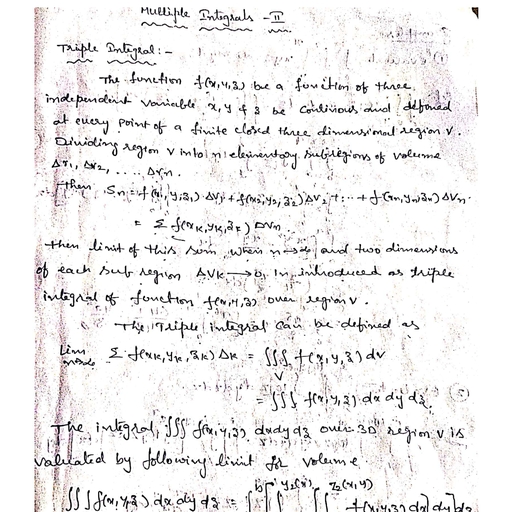 Multiple Integrals - II
Triple Integral:-
The function f(x,y,z) be a function of three
independent variable x, y & z be continious and defined
at every point of a finite closed three dimensional region V.
Dividing region V into n elementary subregions of volume
ΔV1, ΔV2, ..... ΔVn.
Then Sn = f(x1,y1,z1) ΔV1 + f(x2,y2,z2) ΔV2 + ... + f(xn,yn,zn) ΔVn.
= Σ f(xk,yk,zk) ΔVn
then limit of this sum, when n→∞ and two dimensions
of each sub region ΔVk → 0, In introduced as triple
integral of function f(x,y,z) over region V.
The Triple integral can be defined as
Lim n→∞ Σ f(xk,yk,zk) Δk = ∭V f(x,y,z) dv
= ∭ f(x,y,z) dx dy dz.
The integral, ∭ f(x,y,z) dxdydz over 3D region V is
valuated by following limit for volume.
∭ f(x,y,z) dx dy dz = b y2(x) z2(x,y) f(x,y,z) dx] dy] dz